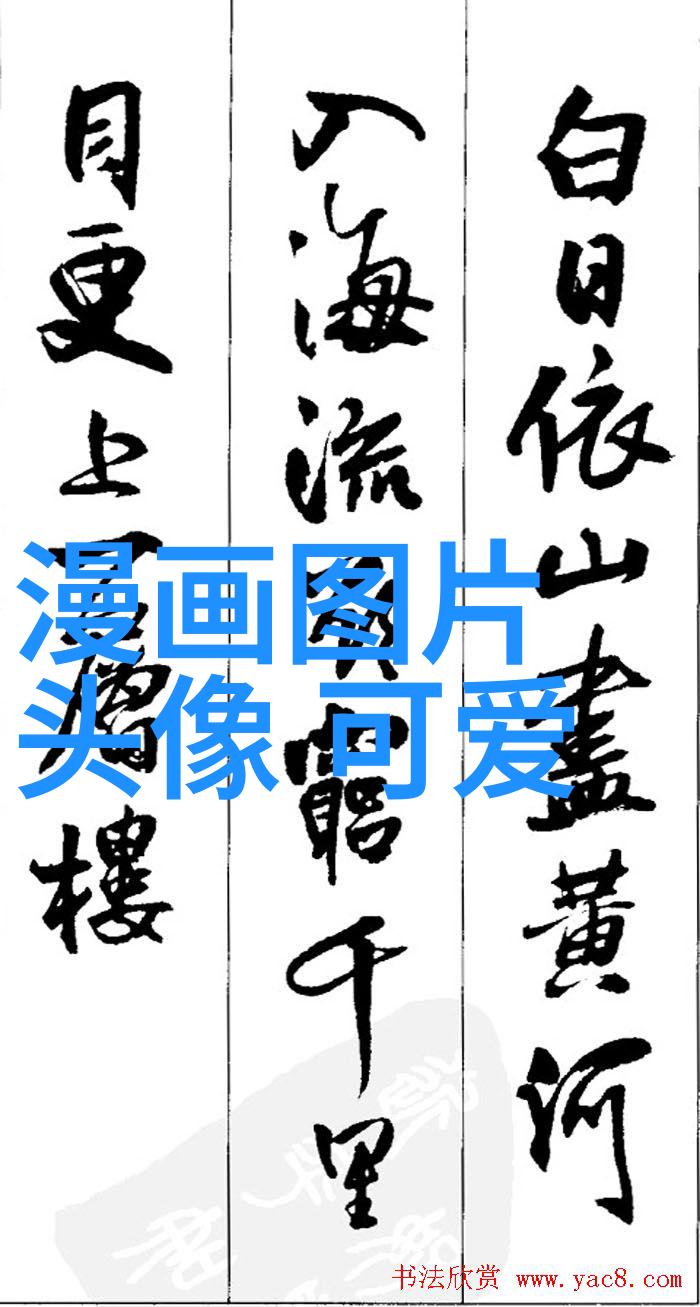 白日依山盡黃河
入海流欲窮千里
目更上一層樓
漫画图片
头像 可爱
书法欣赏 www.yac8.com